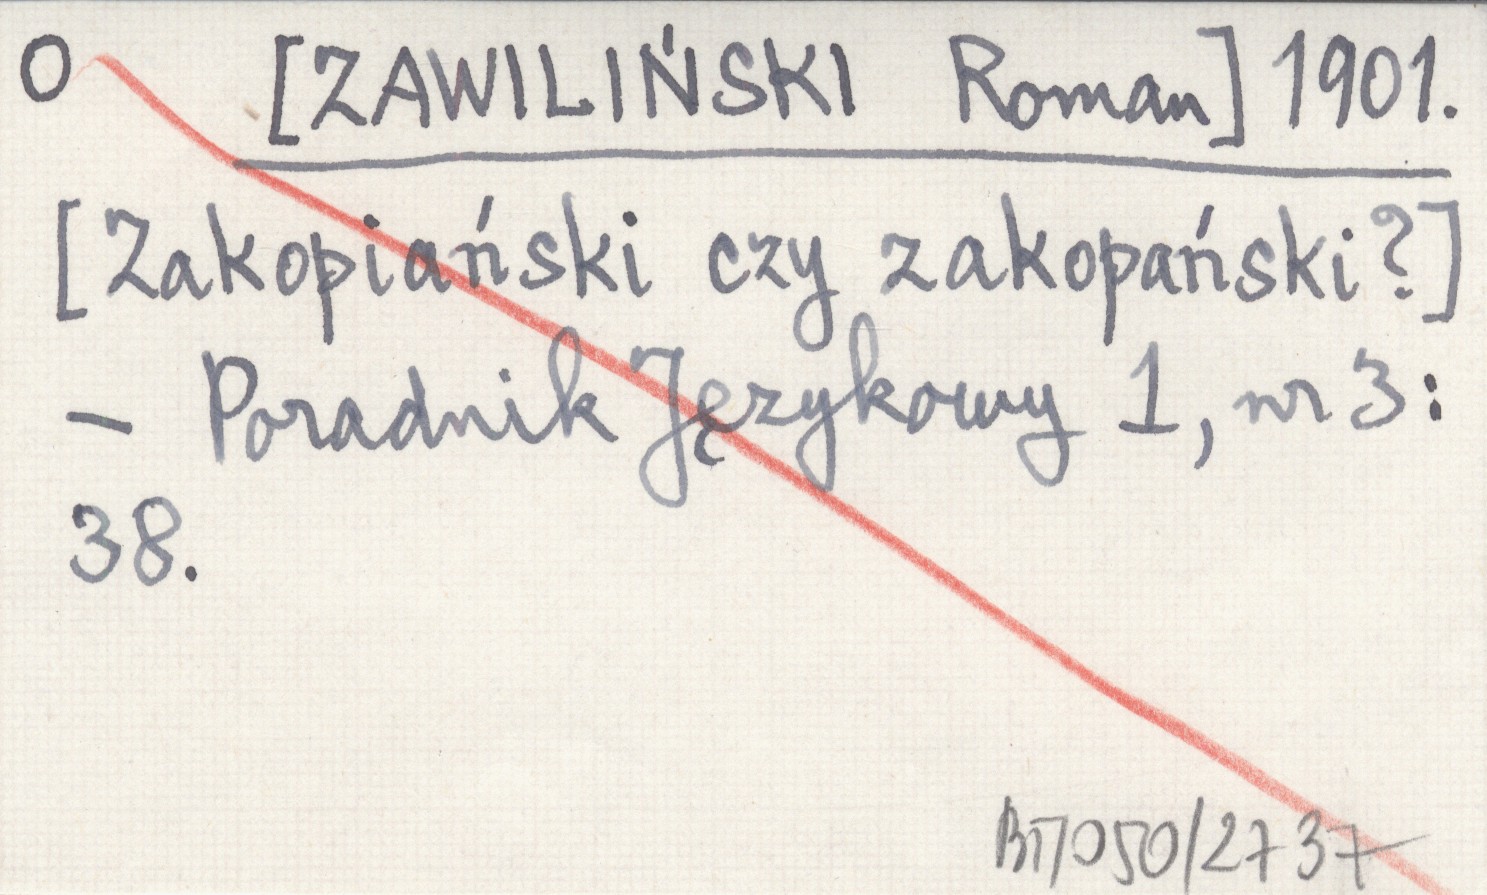 O [ZAWILIŃSKI Roman] 1901.
[Zakopiański czy zakopański?]
– Poradnik Językowy 1, nr 3:
38.
BT/050/2737